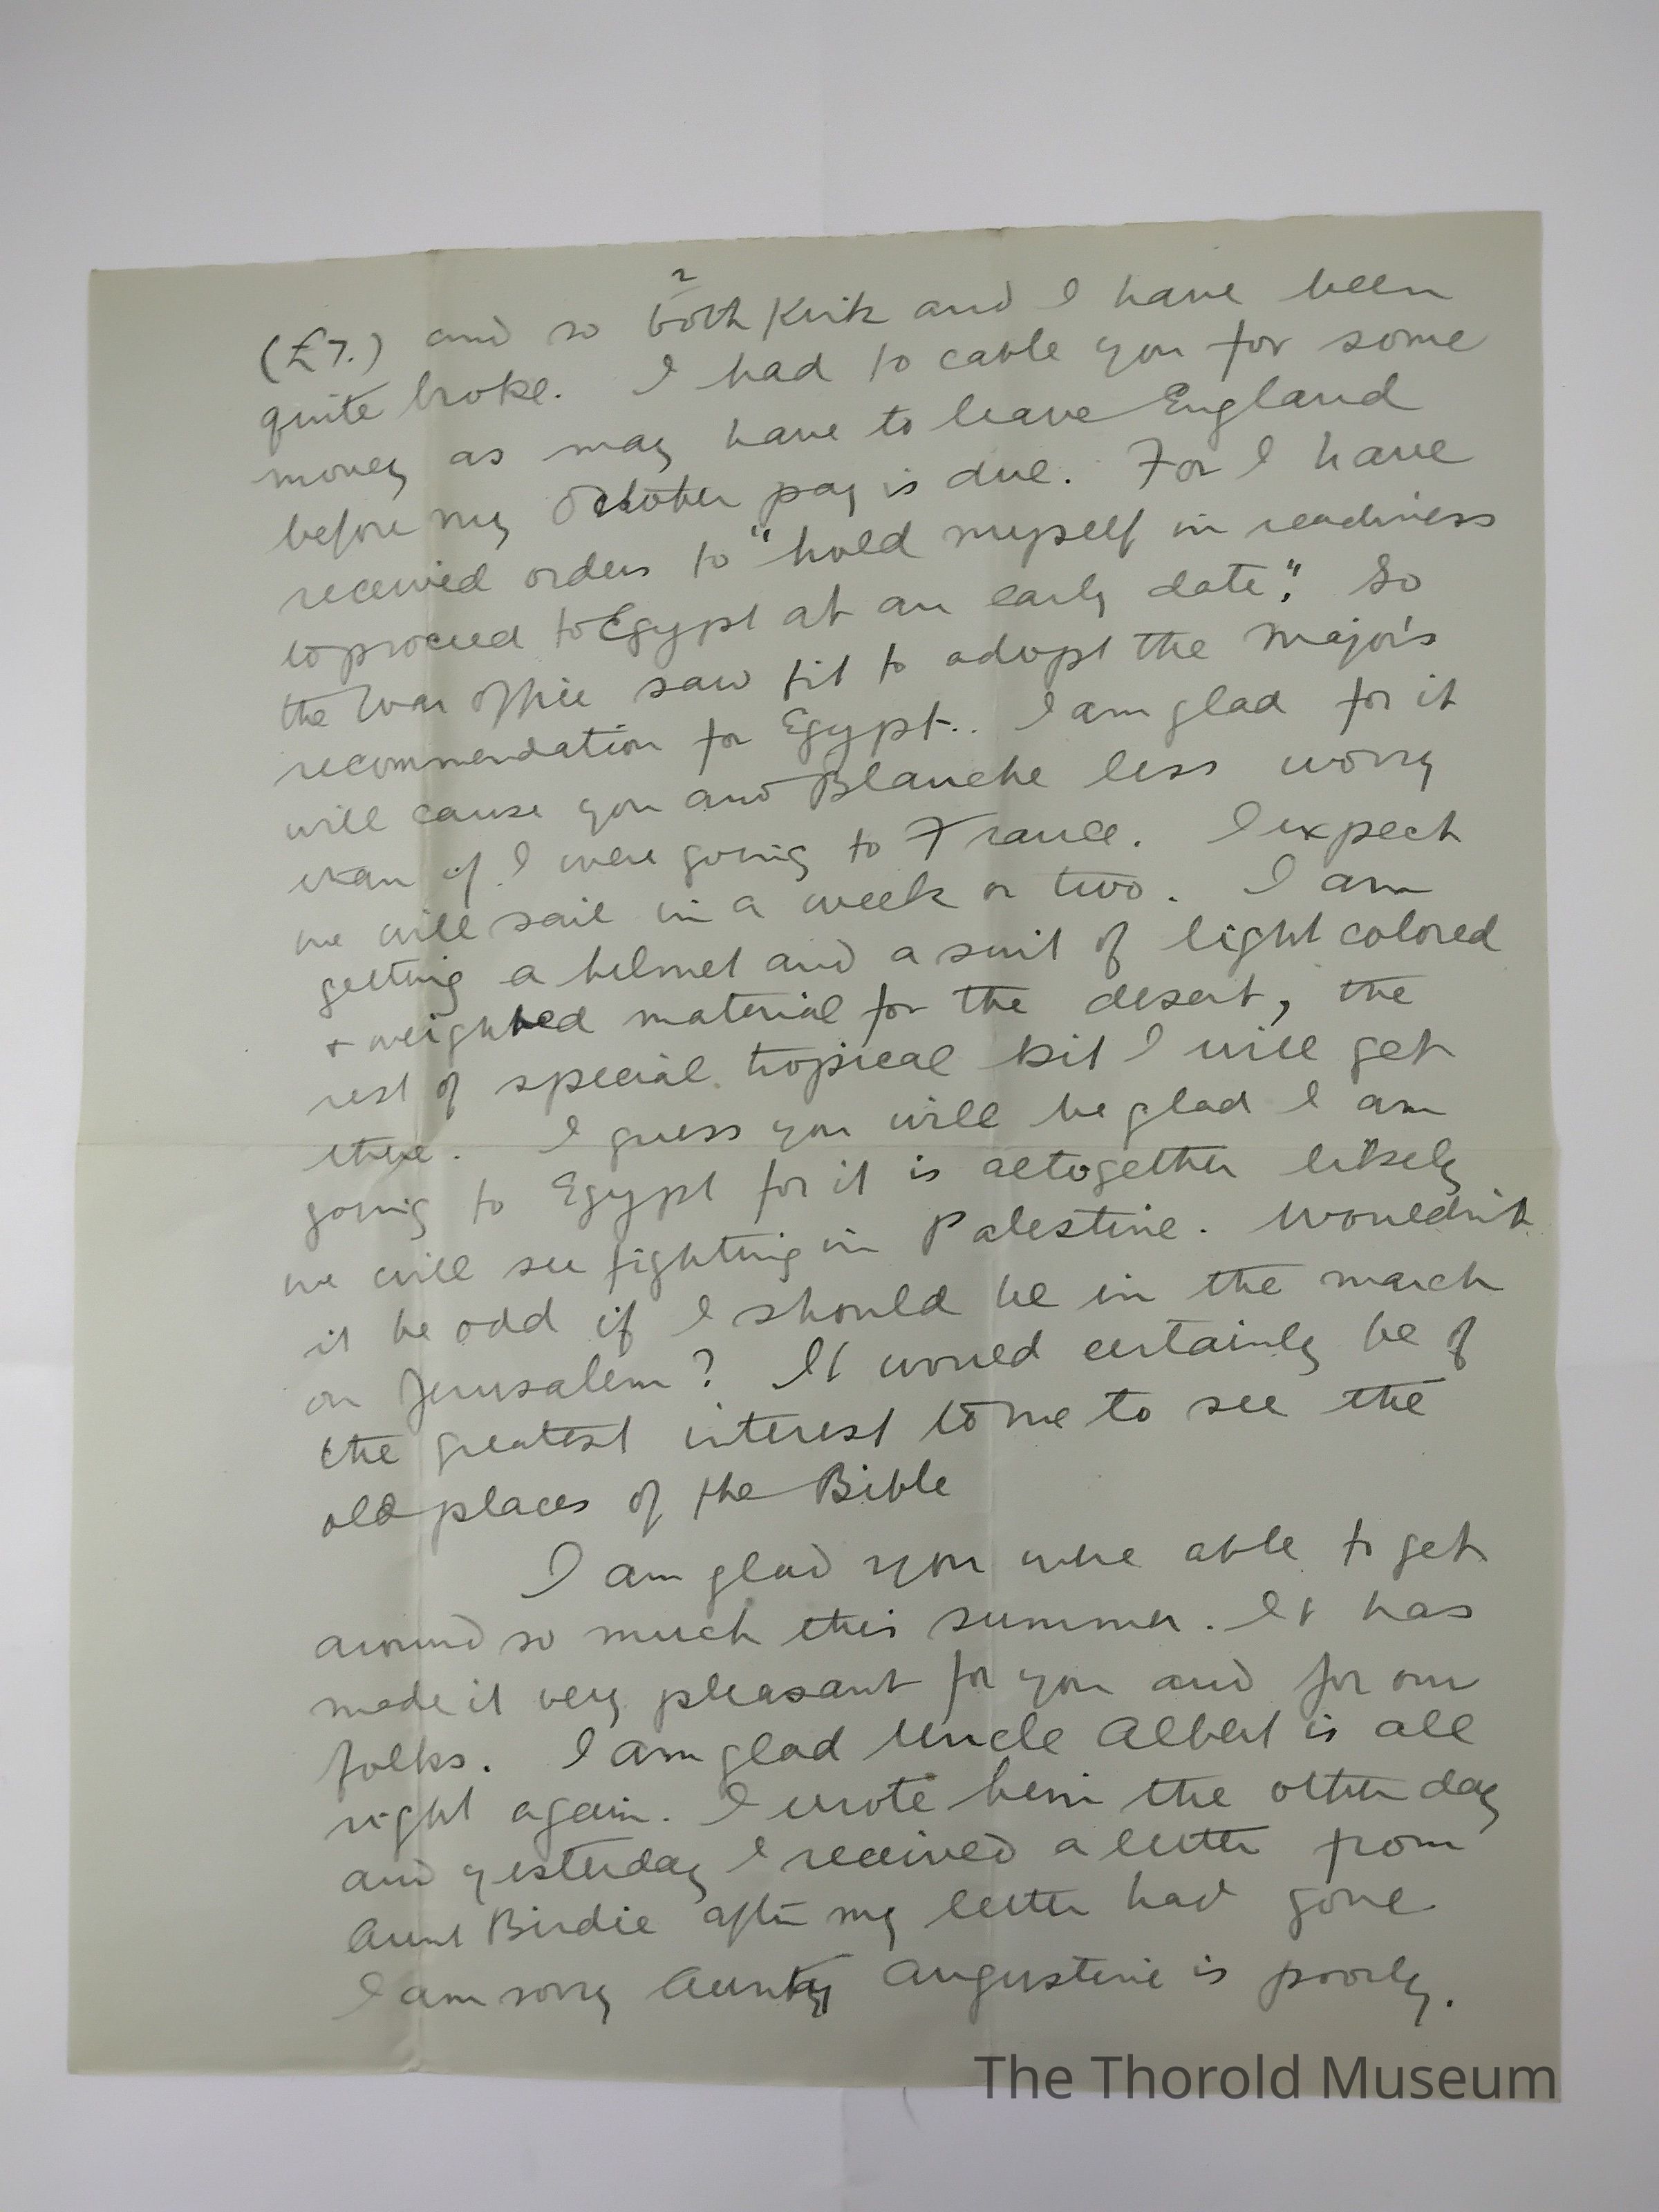 2
(£7.) and so both Kirk and I have been
quite broke. I had to cable you for some
money as may have to leave England
before my October pay is due. For I have
received orders to "hold myself in readiness
to proceed to Egypt at an early date". So
the War Office saw fit to adopt the Major's
recommendation for Egypt.. I am glad for it
will cause you and Blanche less worry
than if I were going to France. I expect
we will sail in a week or two. I am
getting a helmet and a suit of light colored
+ weighted material for the desert, the
rest of special tropical kit I will get
there. I guess you will be glad I am
going to Egypt for it is altogether likely
we will see fighting in Palestine. Wouldn't
it be odd if I should be in the march
on Jerusalem? It would certainly be of
the greatest interest to me to see the
old places of the Bible
I am glad you were able to get
around so much this summer. It has
made it very pleasant for you and for our
folks. I am glad Uncle Albert is all
right again. I wrote him the other day
and yesterday I received a letter from
Aunt Birdie after my letter had gone
I am sorry Aunty Augustine is poorly.
The Thorold Museum